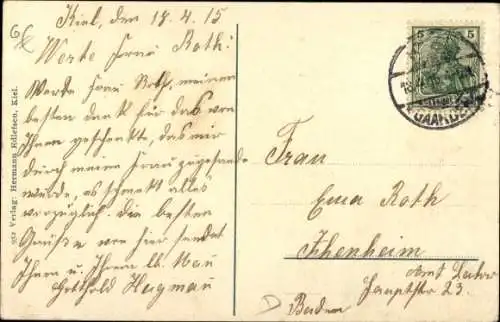 Kiel, den 18.4.15
Werte Frau Roth!
Werde Frau Roth, meinen
besten Dank für das von
Ihnen geschenkte, das mir
durch meine Frau zugesandt
wurde, es schmekt alles
vorzüglich. Die besten
Grüße von hier sendet
Ihnen u. Ihrem lb. Mann
Gotthold Hagmau
952 Verlag: Hermann Edlefsen, Kiel.
5 5
GAARDEN
Frau
Emma Roth
Ichenheim
Amt Lahr
Hauptstr 23.
Baden